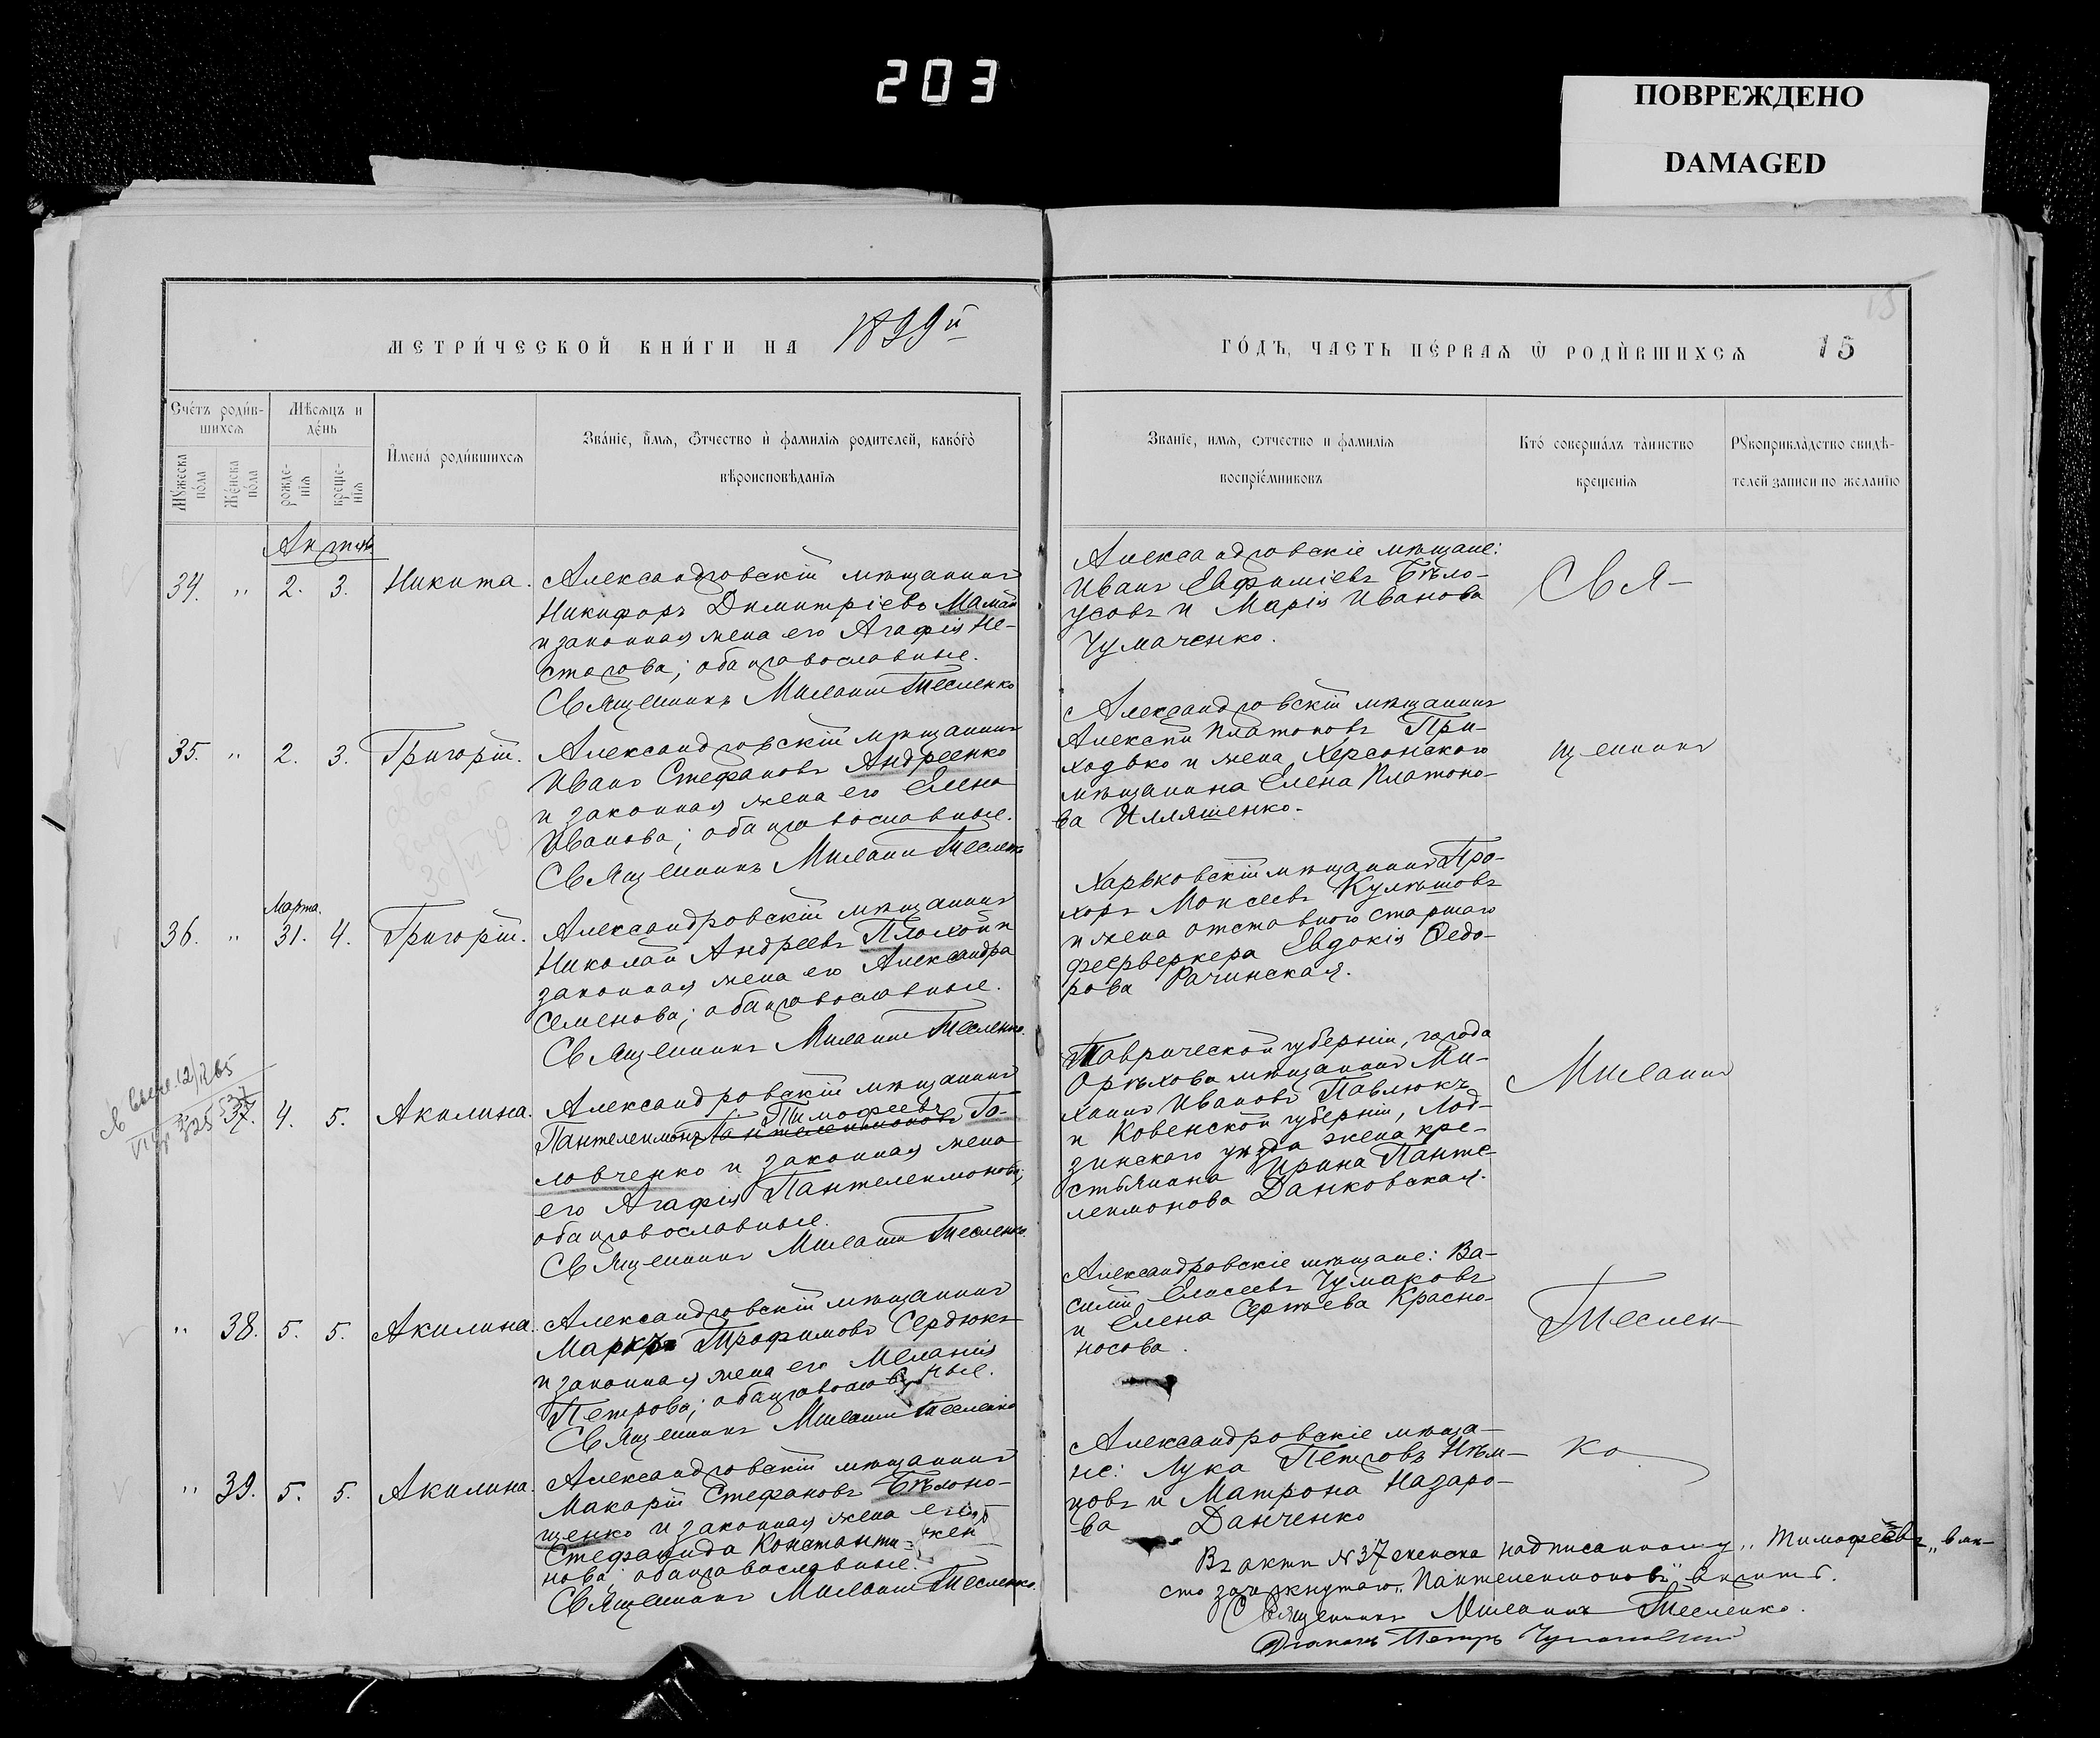 203
ПОВРЕЖДЕНО
DAMAGED
МЕТРИ́ЧЕСКОЙ КНИ́ГИ НА 1899й
ГО́ДЪ, ЧАСТЬ ПЕ́РВАЯ Ѿ РОДИ́ВШИХСЯ 15
Сче́тъ роди́в-
шихся
Мѣсяцъ и
де́нь
Мꙋжеска
по́ла
Же́нска
по́ла
рожде-
нїя
креще-
нїя
И҆мена́ роди́вшихся
Зва́нїе, и҆́мя, ѻ҆́тчество и҆ фамилїя родителей, како́гѡ
вѣроисповѣданїя
Званїе, имя, ѻтчество и фамилїя
воспрїе́мниковъ
Кто́ соверша́лъ та́инство
крещенїя
Рꙋкоприкла́дство свидѣ-
телей записи по желанїю
Апрѣль
34. " 2. 3. Никита.
Александровскій мѣщанинъ
Никифоръ Димитріевъ Мамай
и законная жена его Агафія Не-
стерова; оба православные.
Священникъ Милетій Тесленко
Александровскіе мѣщане:
Иванъ Евфиміевъ Бѣло-
усовъ и Марія Иванова
Чумаченко.
Свя-
35. " 2. 3. Григорій.
Александровскій мѣщанинъ
Иванъ Стефановъ Андреенко
и законная жена его Елена
Иванова; оба православные.
Священникъ Тесленко
Александровскій мѣщанинъ
Алексѣй Платоновъ При-
ходько и жена Херсонскаго
мѣщанина Елена Платоно-
ва Илляшенко.
щенникъ
Марта.
36. " 31. 4. Григорій.
Александровскій мѣщанинъ
Николай Андреевъ и
законная жена его Александра
Семенова; оба православные.
Священникъ Тесленко.
Харьковскій мѣщанинъ Про-
хоръ Моисеевъ Кулѣшовъ
и жена отставного старшаго
фейерверкера Евдокія Ѳедо-
рова Рачинская.
37. 4. 5. Акилина.
Александровскій мѣщанинъ
Тимофеевъ
Пантелеимонъ Пантелеимоновъ Го-
ловченко и законная жена
его Агафія Пантелеимонова;
оба православные.
Священникъ Тесленко.
Таврической губерніи, города
Орѣхова мѣщанинъ Ми-
хаилъ Ивановъ Павлюкъ
и Ковенской губерніи, Лод-
зинскаго уѣзда жена кре-
стьянина Ирина Панте-
леимонова Данковская.
" 38. 5. 5. Акилина.
Александровскій мѣщанинъ
Маркъ Трофимовъ Сердюкъ
и законная жена его Меланія
Петрова; оба православные.
Священникъ Тесленко
Александровскіе мѣщане: Ва-
силій Елисеевъ Чумаковъ
и Елена Сергѣева Красно-
носова.
Теслен-
" 39. 5. 5. Акилина.
Александровскій мѣщанинъ
Макарій Стефановъ Бѣлоно-
щенко и законная жена его
Стефанида Константи-
нова; оба православные.
Священникъ Тесленко.
Александровскіе мѣща-
не: Лука Петровъ Нѣм-
цовъ и Матрона Назаро-
ва Данченко
ко
Въ актѣ №37 женска надписанному „Тимофеевъ„ вмѣ-
сто зачеркнутаго „Пантелеимоновъ„ вѣрить.
Священникъ Тесленко.
Діаконъ Петръ